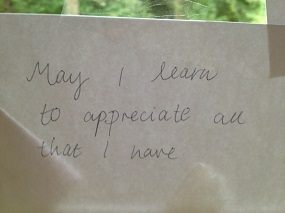 May I learn
to appreciate all
that I have